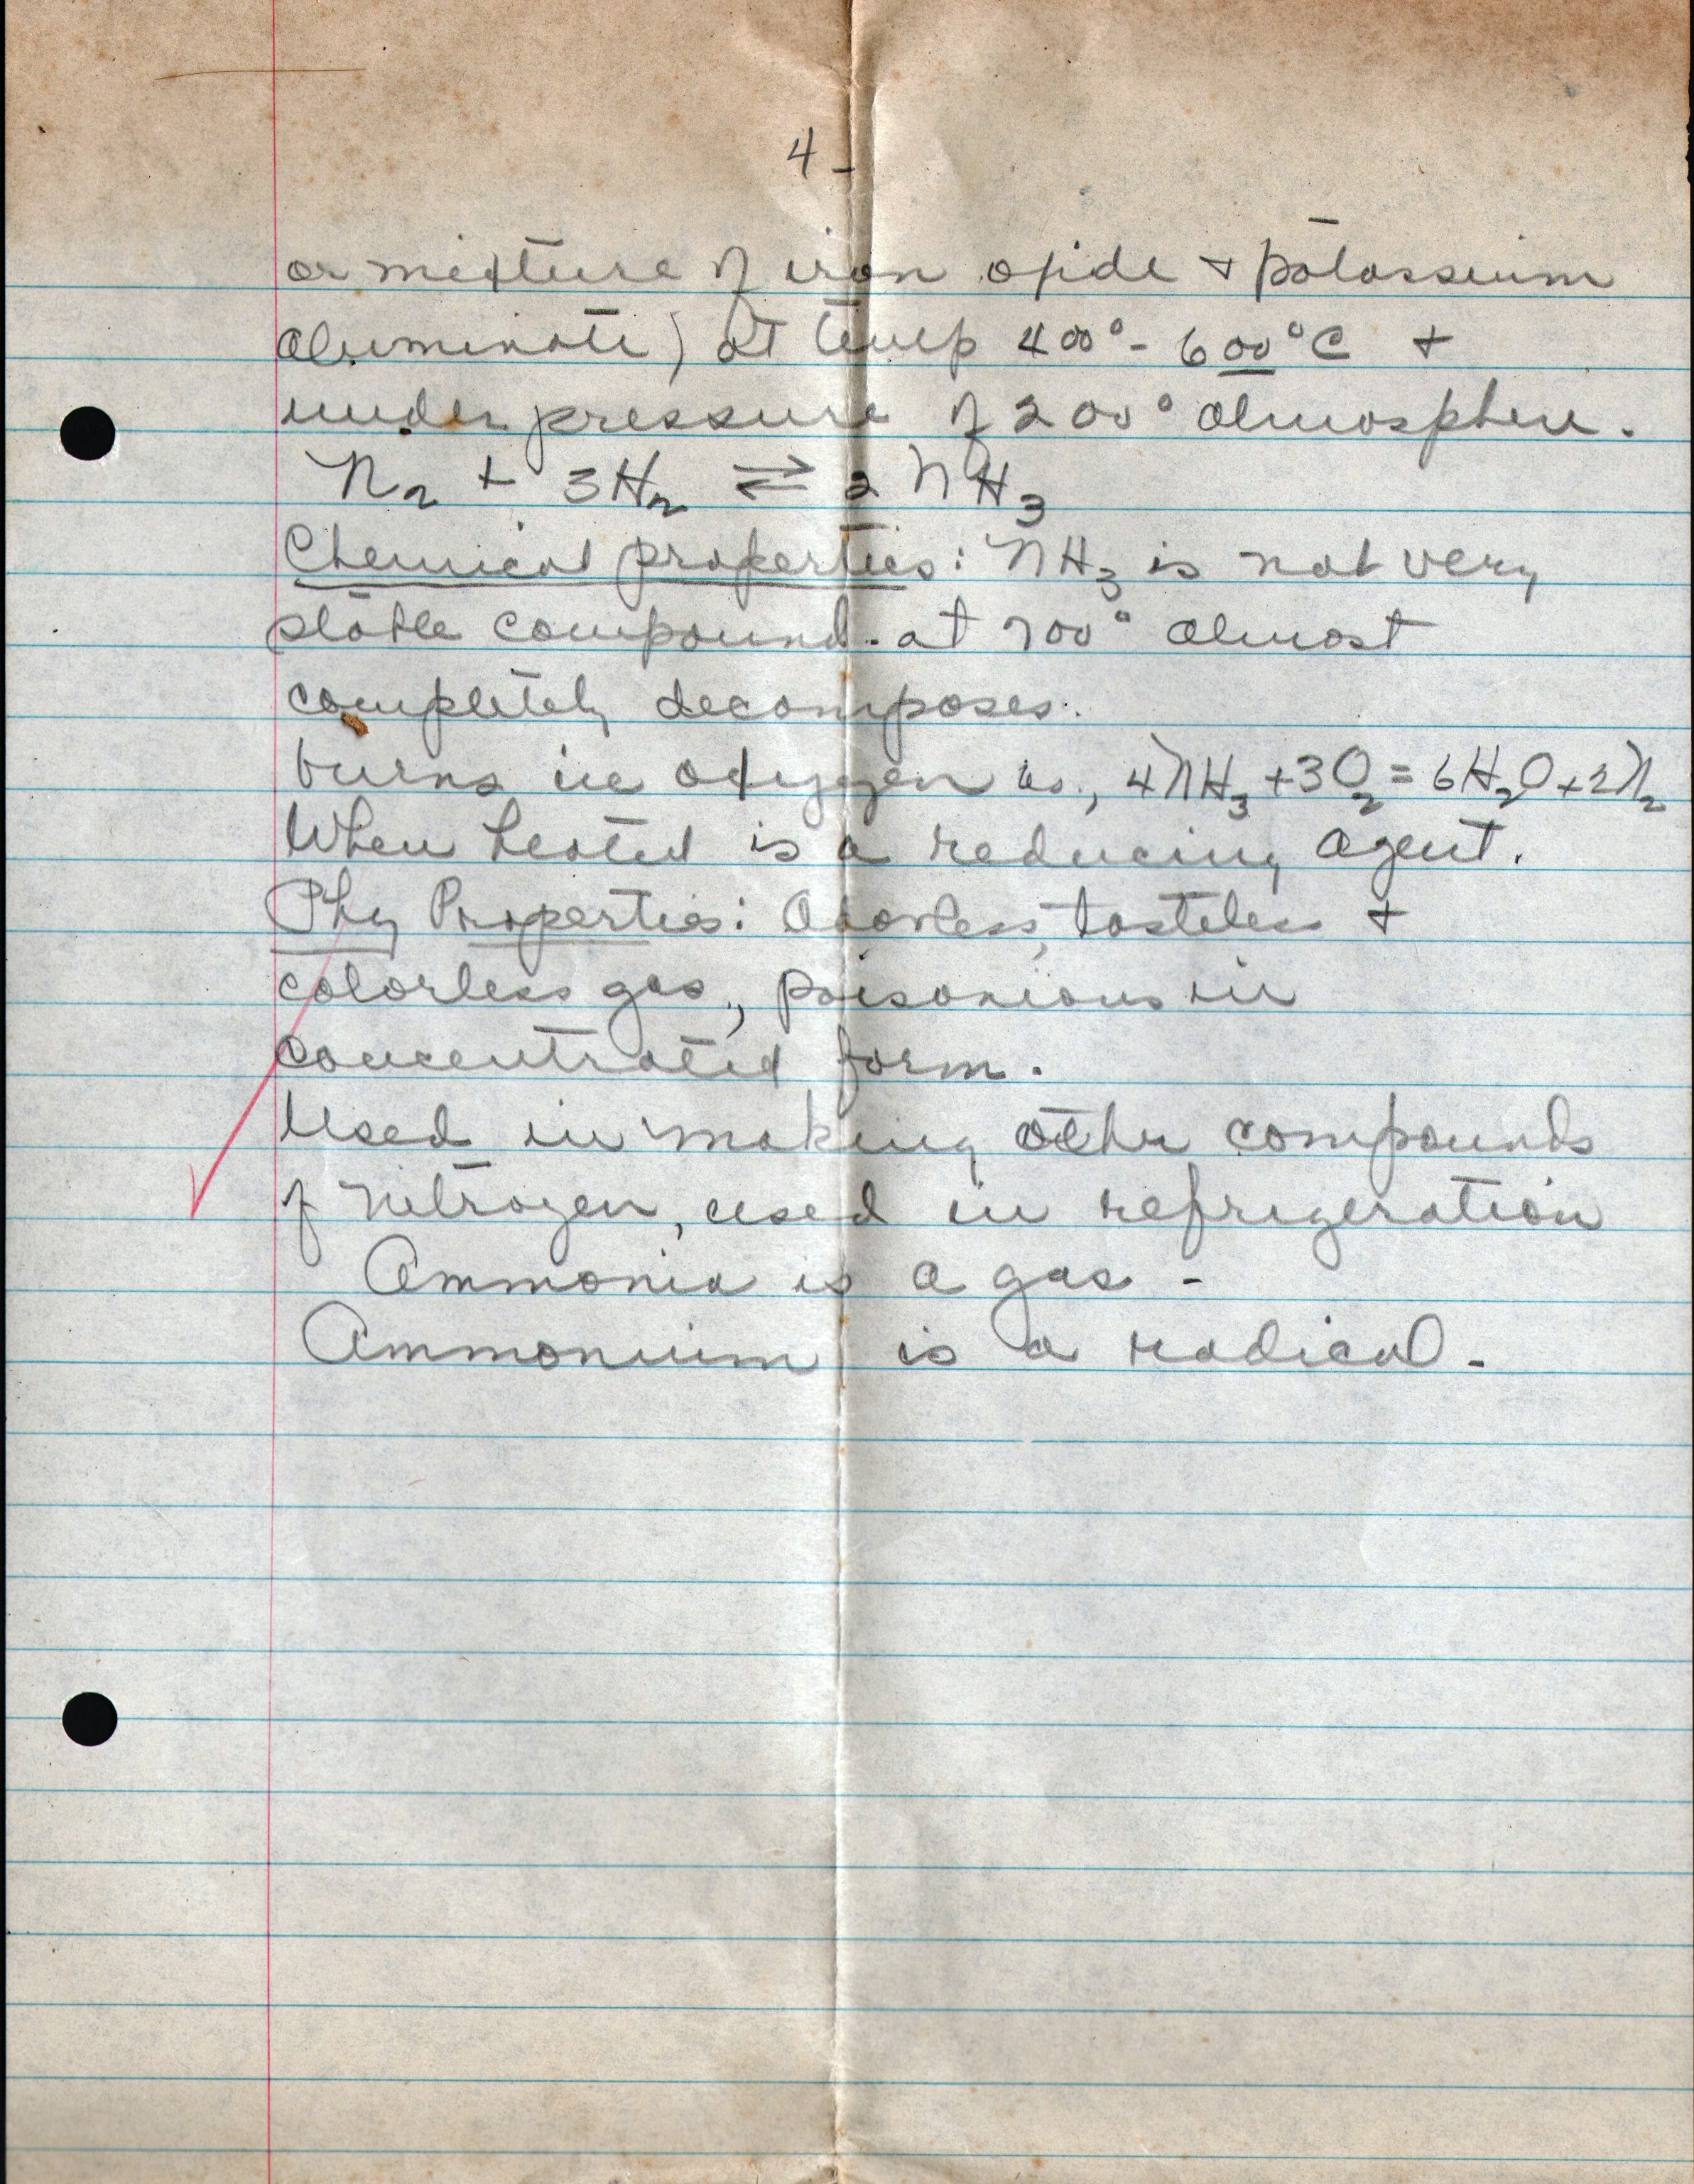 4 -
or mixture of iron oxide + potassium
aluminate) at temp 400° - 600°C +
under pressure of 200° atmosphere.
N₂ + 3H₂ ⇌ 2NH₃
Chemical properties: NH₃ is not very
stable compound. at 700° almost
completely decomposes.
burns in oxygen as, 4NH₃ + 3O₂ = 6H₂O + 2N₂
When heated is a reducing agent.
Phy Properties: Odorless, tasteless +
colorless gas, poisonious in
concentrated form.
Used in making other compounds
of nitrogen, used in refrigeration
Ammonia is a gas -
Ammonium is a radical -